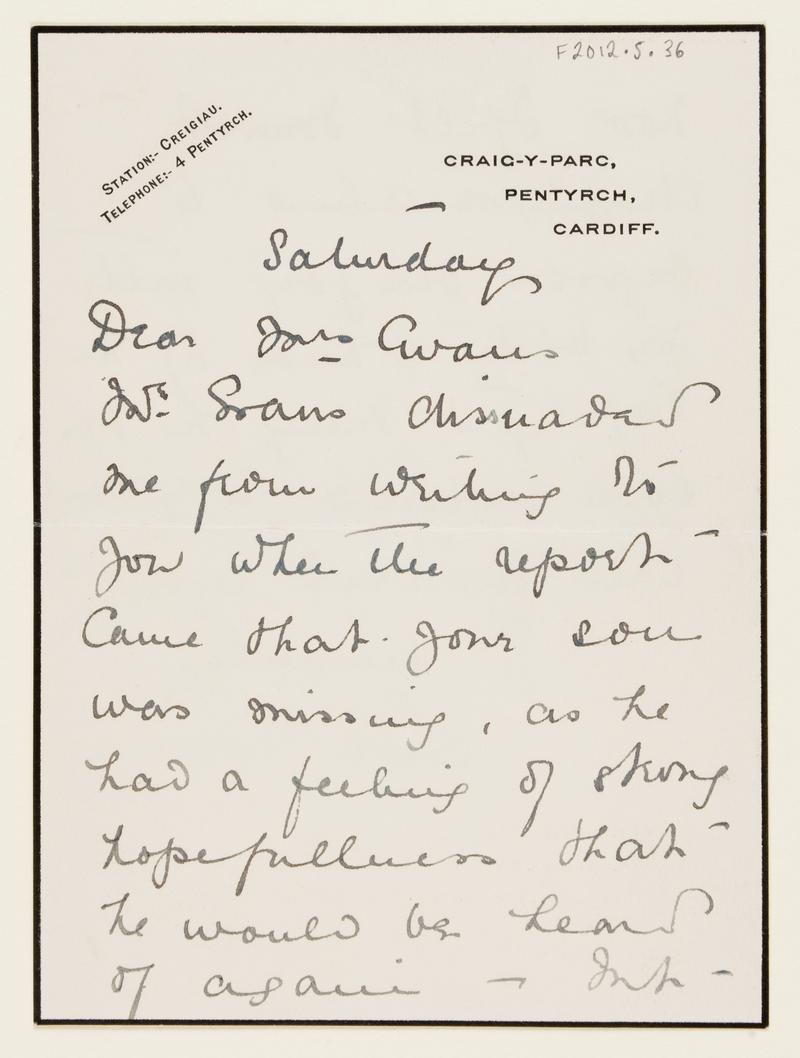 F2012.5.36
STATION:- CREIGIAU.
TELEPHONE:- 4 PENTYRCH.
CRAIG-Y-PARC,
PENTYRCH,
CARDIFF.
Saturday
Dear Mrs Evans
Mr. Evans dissuaded
me from writing to
you when the report
came that your son
was missing, as he
had a feeling of strong
hopefullness that
he would be heard
of again –